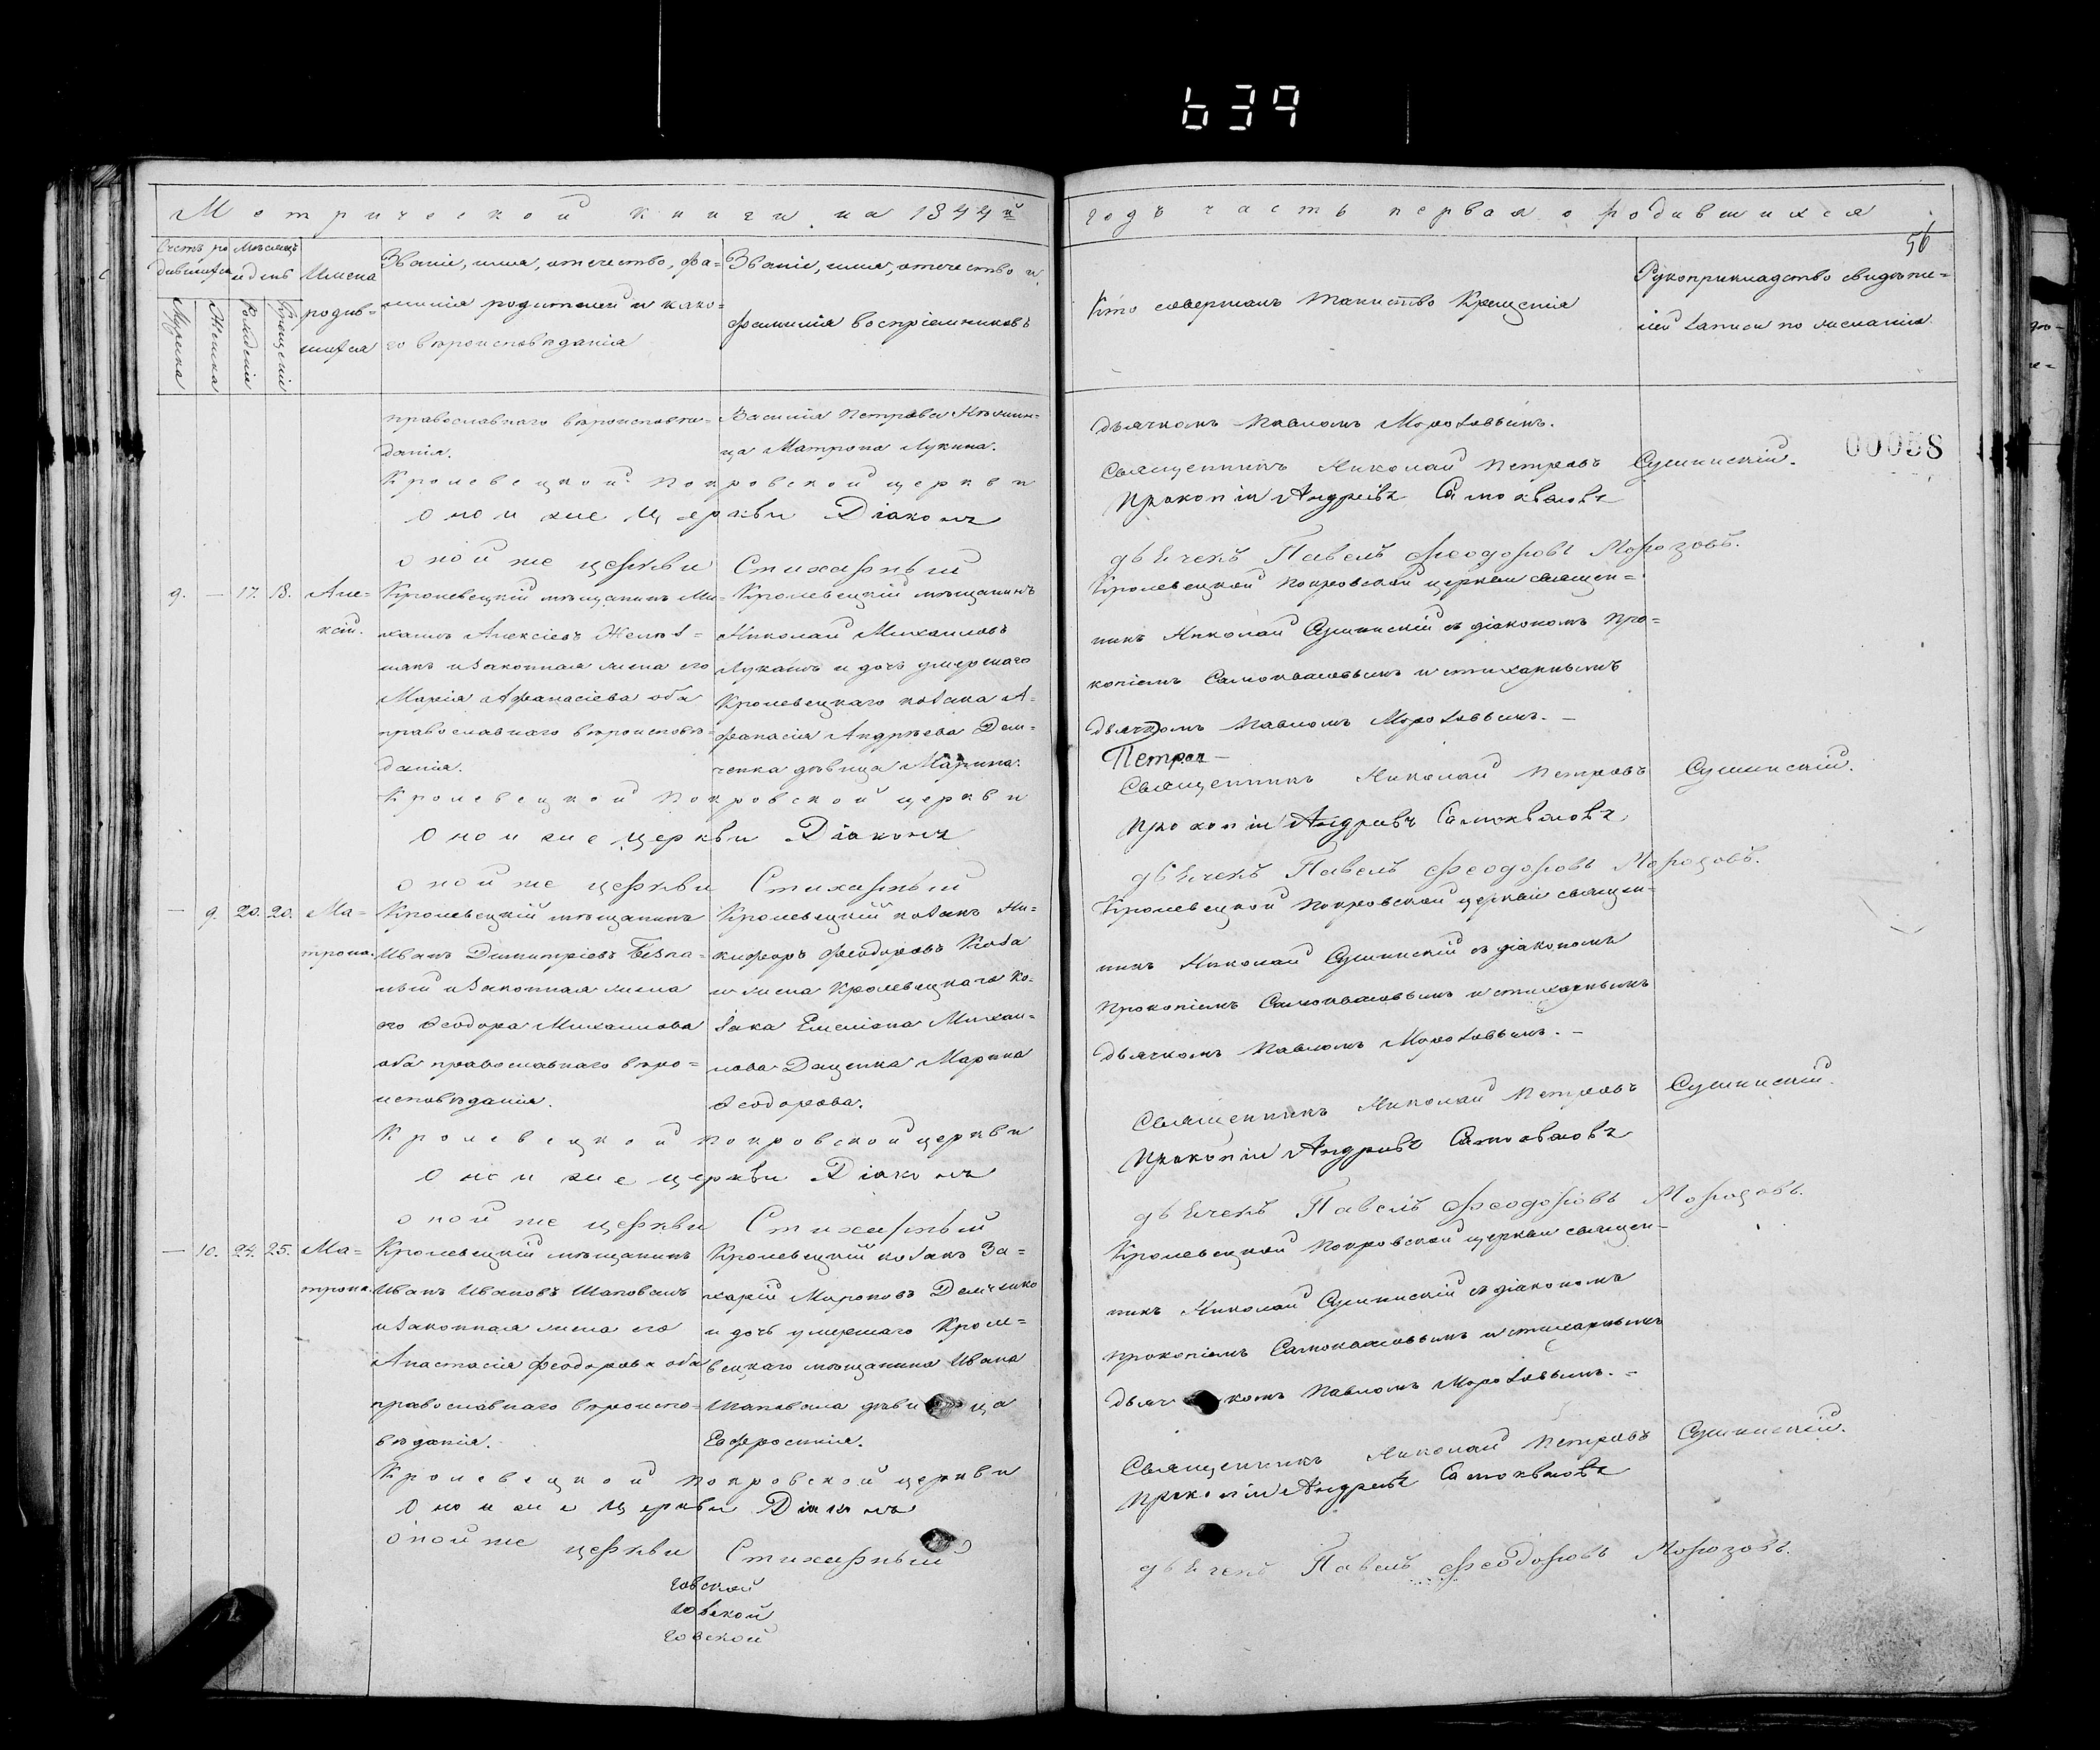 639
Метрической книги на 1844й
годъ часть первая о родившихся
56
Счетъ ро
дившихся
Мѣсяцъ
и день
Мужска
Женска
Рожденія
Крещенія
Имена
родив=
шихся
Званіе, имя, отечество, фа=
милія родителей и како=
го вѣроисповѣданія
Званіе, имя, отечество и
фамилія воспріемниковъ
Кто совершалъ таинство Крещенія
Рукоприкладство свидѣте=
лей записи по желанію
православнаго вѣроисповѣ=
данія.
Василія Петрова
ца Матрона Лукина.
дьячкомъ Павломъ Морозовымъ.
00058
Кролевецкой Покровской церкви
Священникъ Николай Петровъ Сушинскій.
Оной же Церкви Діаконъ
Прокопій Андріевъ Самохваловъ
оной же церкви Стихарный
дьячекъ Павелъ Феодоровъ Морозовъ.
9. — 17. 18. Але=
ксій.
Кролевецкій мѣщанинъ Ми=
хаилъ Алексіевъ
и законная жена его
Марія Афанасіева оба
православнаго вѣроисповѣ=
данія.
Кролевецкій мѣщанинъ
Николай Михаиловъ
Лукашъ и дочь умершаго
Кролевецкаго козака А=
фанасія Андрѣева Дем=
ченка дѣвица Марина.
Кролевецкой Покровской церкви священ=
никъ Николай Сушинскій съ діакономъ Про=
копіемъ Самохваловымъ и стихарнымъ
дьячкомъ Павломъ Морозовымъ. —
Петров
Кролевецкой Покровской церкви
Священникъ Николай Петровъ Сушинскій.
Оной же Церкви Діаконъ
Прокопій Андріевъ Самохваловъ
оной же церкви Стихарный
дьячекъ Павелъ Феодоровъ Морозовъ.
— 9. 20. 20. Ма=
трона.
Кролевецкій мѣщанинъ
Иванъ Димитріевъ Безпа=
лый и законная жена
его Ѳеодора Михаилова
оба православнаго вѣро=
исповѣданія.
Кролевецкій козакъ Ни=
кифоръ Феодоровъ Коза
и жена Кролевецкаго ко=
зака Емеліана Михаи=
лова Даценка Марина
Ѳеодорова.
Кролевецкой Покровской церкви священ=
никъ Николай Сушинскій съ діакономъ
Прокопіемъ Самохваловымъ и стихарнымъ
дьячкомъ Павломъ Морозовымъ. —
Кролевецкой Покровской церкви
Священникъ Николай Петровъ Сушинскій.
Оной же Церкви Діаконъ
Прокопій Андріевъ Самохваловъ
оной же церкви Стихарный
дьячекъ Павелъ Феодоровъ Морозовъ.
— 10. 24. 25. Ма=
трона.
Кролевецкій мѣщанинъ
Иванъ Ивановъ Шаповалъ
и законная жена его
Анастасія Феодорова оба
православнаго вѣроиспо=
вѣданія.
Кролевецкій козакъ За=
харій Мироновъ Демченко
и дочь умершаго Кроле=
вецкаго мѣщанина Ивана
Шаповала дѣвица
Евфросинія.
Кролевецкой Покровской церкви священ=
никъ Николай Сушинскій съ діакономъ
Прокопіемъ Самохваловымъ и стихарнымъ
дьячкомъ Павломъ Морозовымъ. —
Кролевецкой Покровской церкви
Священникъ Николай Петровъ Сушинскій.
Оной же Церкви Діаконъ
Прокопій Андріевъ Самохваловъ
оной же церкви Стихарный
дьячекъ Павелъ Феодоровъ Морозовъ.